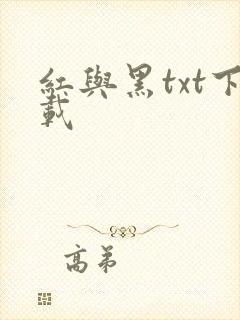 紅與黑txt下
載
高弟